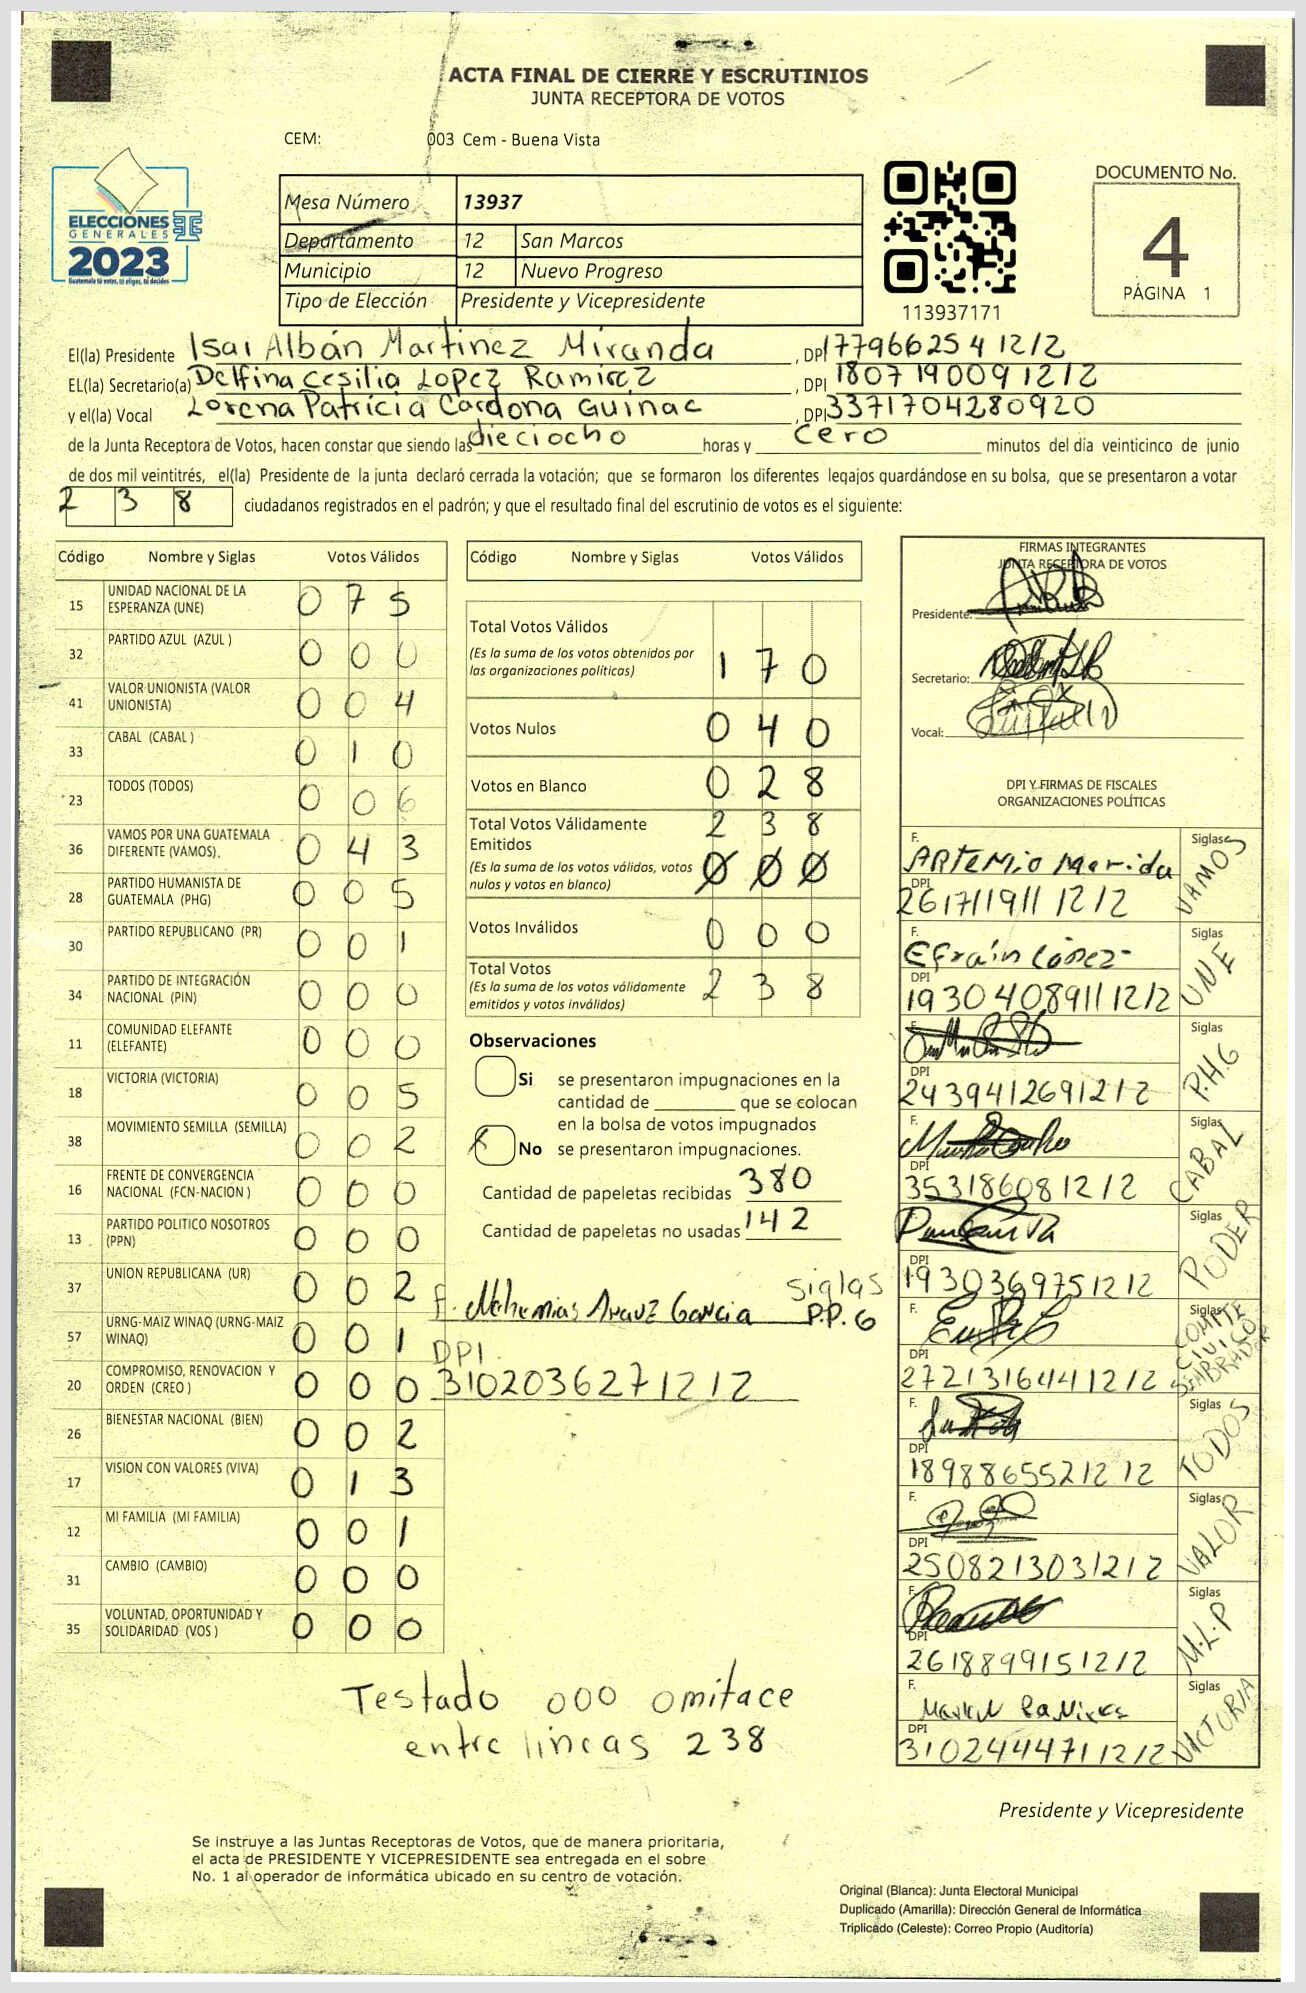 ACTA FINAL DE CIERRE Y ESCRUTINIOS
JUNTA RECEPTORA DE VOTOS
CEM: 003 Cem - Buena Vista
ELECCIONES
GENERALES
2023
Guatemala tú votas, tú eliges, tú decides
Mesa Número 13937
Departamento 12 San Marcos
Municipio 12 Nuevo Progreso
Tipo de Elección Presidente y Vicepresidente
113937171
DOCUMENTO No.
4
PÁGINA 1
El(la) Presidente Isai Albán Martinez Miranda , DPI 1779662541212
EL(la) Secretario(a) Delfina Cesilia Lopez Ramirez , DPI 1807190091212
y el(la) Vocal Lorena Patricia Cardona Guinac , DPI 3371704280920
de la Junta Receptora de Votos, hacen constar que siendo las dieciocho horas y cero minutos del día veinticinco de junio
de dos mil veintitrés, el(la) Presidente de la junta declaró cerrada la votación; que se formaron los diferentes legajos guardándose en su bolsa, que se presentaron a votar
2 3 8 ciudadanos registrados en el padrón; y que el resultado final del escrutinio de votos es el siguiente:
Código Nombre y Siglas Votos Válidos
15 UNIDAD NACIONAL DE LA ESPERANZA (UNE) 0 7 5
32 PARTIDO AZUL (AZUL ) 0 0 0
41 VALOR UNIONISTA (VALOR UNIONISTA) 0 0 4
33 CABAL (CABAL ) 0 1 0
23 TODOS (TODOS) 0 0 6
36 VAMOS POR UNA GUATEMALA DIFERENTE (VAMOS). 0 4 3
28 PARTIDO HUMANISTA DE GUATEMALA (PHG) 0 0 5
30 PARTIDO REPUBLICANO (PR) 0 0 1
34 PARTIDO DE INTEGRACIÓN NACIONAL (PIN) 0 0 0
11 COMUNIDAD ELEFANTE (ELEFANTE) 0 0 0
18 VICTORIA (VICTORIA) 0 0 5
38 MOVIMIENTO SEMILLA (SEMILLA) 0 0 2
16 FRENTE DE CONVERGENCIA NACIONAL (FCN-NACION ) 0 0 0
13 PARTIDO POLITICO NOSOTROS (PPN) 0 0 0
37 UNION REPUBLICANA (UR) 0 0 2
57 URNG-MAIZ WINAQ (URNG-MAIZ WINAQ) 0 0 1
20 COMPROMISO, RENOVACION Y ORDEN (CREO ) 0 0 0
26 BIENESTAR NACIONAL (BIEN) 0 0 2
17 VISION CON VALORES (VIVA) 0 1 3
12 MI FAMILIA (MI FAMILIA) 0 0 1
31 CAMBIO (CAMBIO) 0 0 0
35 VOLUNTAD, OPORTUNIDAD Y SOLIDARIDAD (VOS ) 0 0 0
Código Nombre y Siglas Votos Válidos
Total Votos Válidos
(Es la suma de los votos obtenidos por
las organizaciones políticas) 1 7 0
Votos Nulos 0 4 0
Votos en Blanco 0 2 8
Total Votos Válidamente Emitidos 2 3 8
(Es la suma de los votos válidos, votos
nulos y votos en blanco) 0 0 0
Votos Inválidos 0 0 0
Total Votos
(Es la suma de los votos válidamente
emitidos y votos inválidos) 2 3 8
Observaciones
Si se presentaron impugnaciones en la
cantidad de que se colocan
en la bolsa de votos impugnados
X No se presentaron impugnaciones.
Cantidad de papeletas recibidas 380
Cantidad de papeletas no usadas 142
F. Nehemias Arauz Garcia Siglas P.P.G
DPI
3102036271212
Testado 000 omitace
entre lineas 238
FIRMAS INTEGRANTES
JUNTA RECEPTORA DE VOTOS
Presidente:
Secretario:
Vocal:
DPI Y FIRMAS DE FISCALES
ORGANIZACIONES POLÍTICAS
F. Artemio Merida Siglas VAMOS
DPI 2617119111212
F. Efraín López Siglas UNE
DPI 1930408911212
F. Siglas P.H.G
DPI 2439412691212
F. Siglas CABAL
DPI 353186081212
F. Siglas PODER
DPI 1930369751212
F. Siglas COMITE CIVICO SEMBRADOR
DPI 2721316441212
F. Siglas TODOS
DPI 1898865521212
F. Siglas VALOR
DPI 2508213031212
F. Siglas M.L.P
DPI 2618899151212
F. Siglas VICTORIA
DPI 3102444711212
Presidente y Vicepresidente
Se instruye a las Juntas Receptoras de Votos, que de manera prioritaria,
el acta de PRESIDENTE Y VICEPRESIDENTE sea entregada en el sobre
No. 1 al operador de informática ubicado en su centro de votación.
Original (Blanca): Junta Electoral Municipal
Duplicado (Amarilla): Dirección General de Informática
Triplicado (Celeste): Correo Propio (Auditoría)